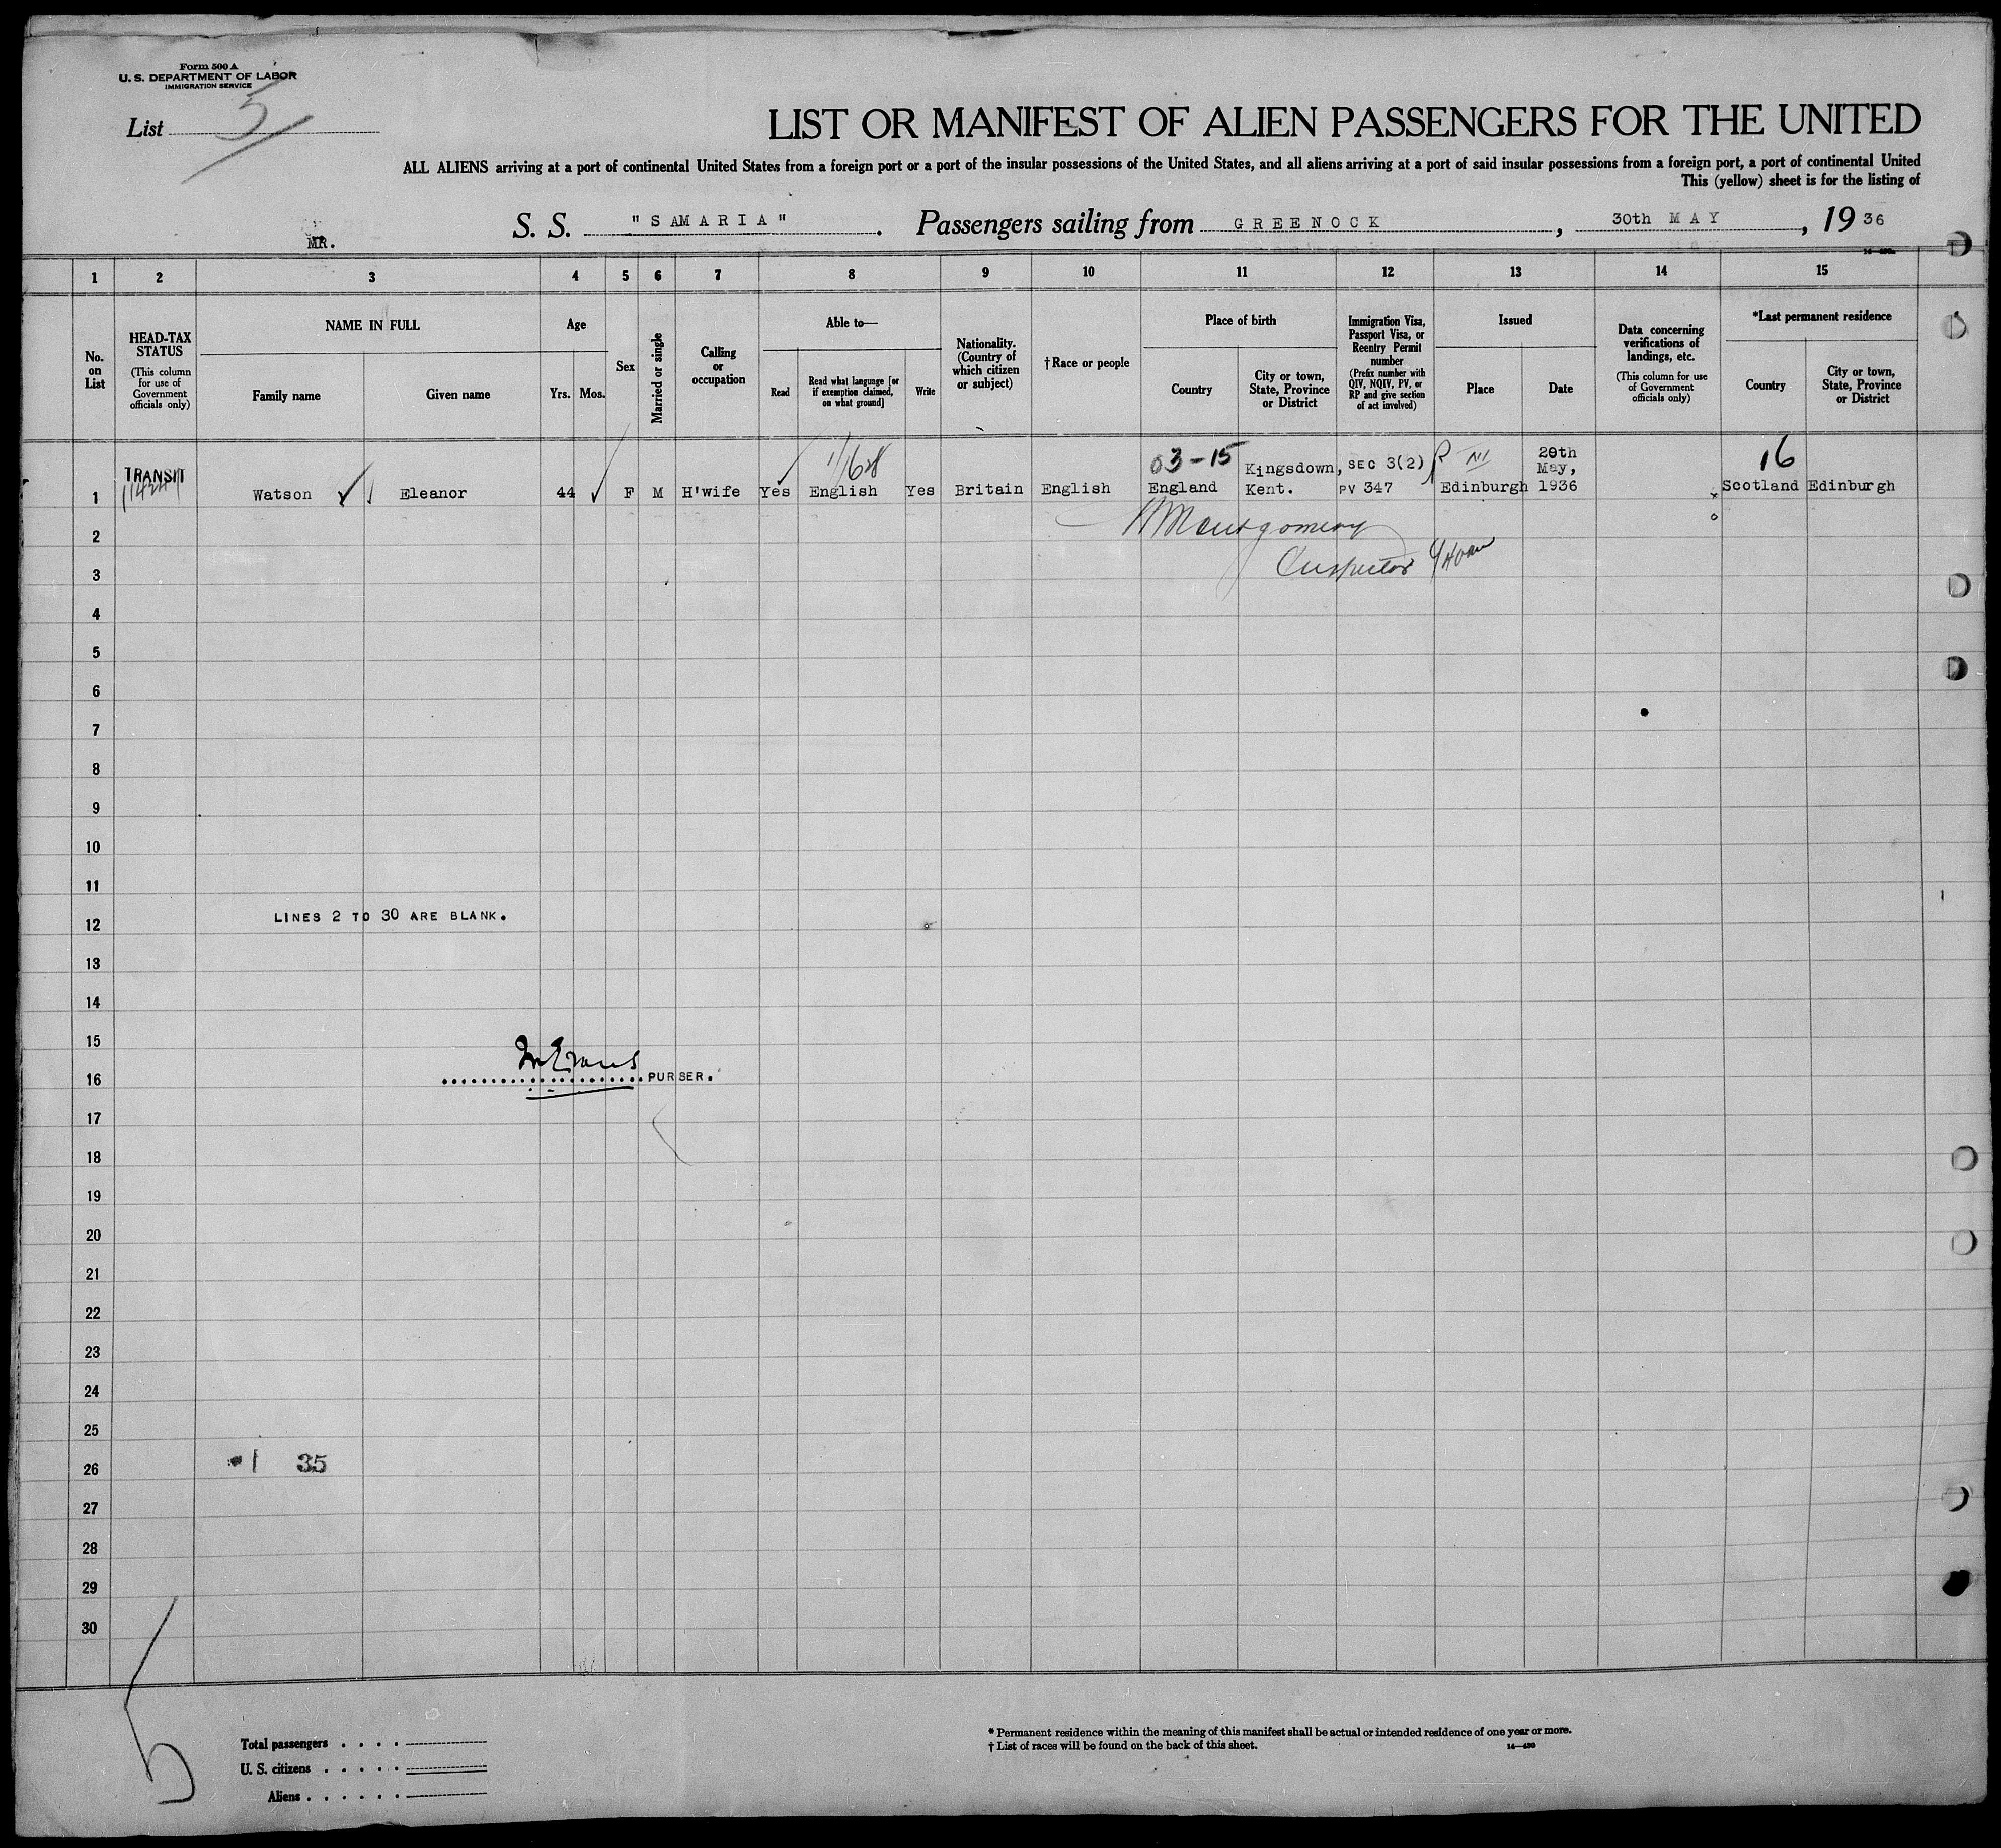 Form 500 A
U. S. DEPARTMENT OF LABOR
IMMIGRATION SERVICE
List 5
LIST OR MANIFEST OF ALIEN PASSENGERS FOR THE UNITED
ALL ALIENS arriving at a port of continental United States from a foreign port or a port of the insular possessions of the United States, and all aliens arriving at a port of said insular possessions from a foreign port, a port of continental United
This (yellow) sheet is for the listing of
MR.
S. S. "SAMARIA". Passengers sailing from GREENOCK, 30th MAY, 1936
1 2 3 4 5 6 7 8 9 10 11 12 13 14 15
No. on List
HEAD-TAX STATUS
(This column for use of Government officials only)
NAME IN FULL
Family name
Given name
Age
Yrs. Mos.
Sex
Married or single
Calling or occupation
Able to—
Read
Read what language [or if exemption claimed, on what ground]
Write
Nationality. (Country of which citizen or subject)
† Race or people
Place of birth
Country
City or town, State, Province or District
Immigration Visa, Passport Visa, or Reentry Permit number
(Prefix number with QIV, NQIV, PV, or RP and give section of act involved)
Issued
Place
Date
Data concerning verifications of landings, etc.
(This column for use of Government officials only)
*Last permanent residence
Country
City or town, State, Province or District
03-15
16
TRANSIT
1 Watson Eleanor 44 F M H'wife Yes English Yes Britain English England Kingsdown, Kent. SEC 3(2) PV 347 Edinburgh 29th May, 1936 Scotland Edinburgh
Montgomery
Inspector
2
3
4
5
6
7
8
9
10
11
LINES 2 TO 30 ARE BLANK.
12
13
14
15
16 PURSER.
17
18
19
20
21
22
23
24
25
26 1 35
27
28
29
30
Total passengers
U. S. citizens
Aliens
* Permanent residence within the meaning of this manifest shall be actual or intended residence of one year or more.
† List of races will be found on the back of this sheet.
14—430